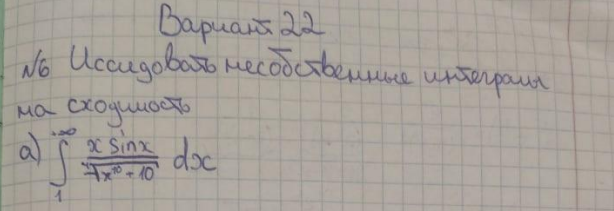 Вариант 22
№6 Исследовать несобственные интегралы
на сходимость
а) ∫₁^{+∞} x sin x / √(x¹⁰ + 10) dx